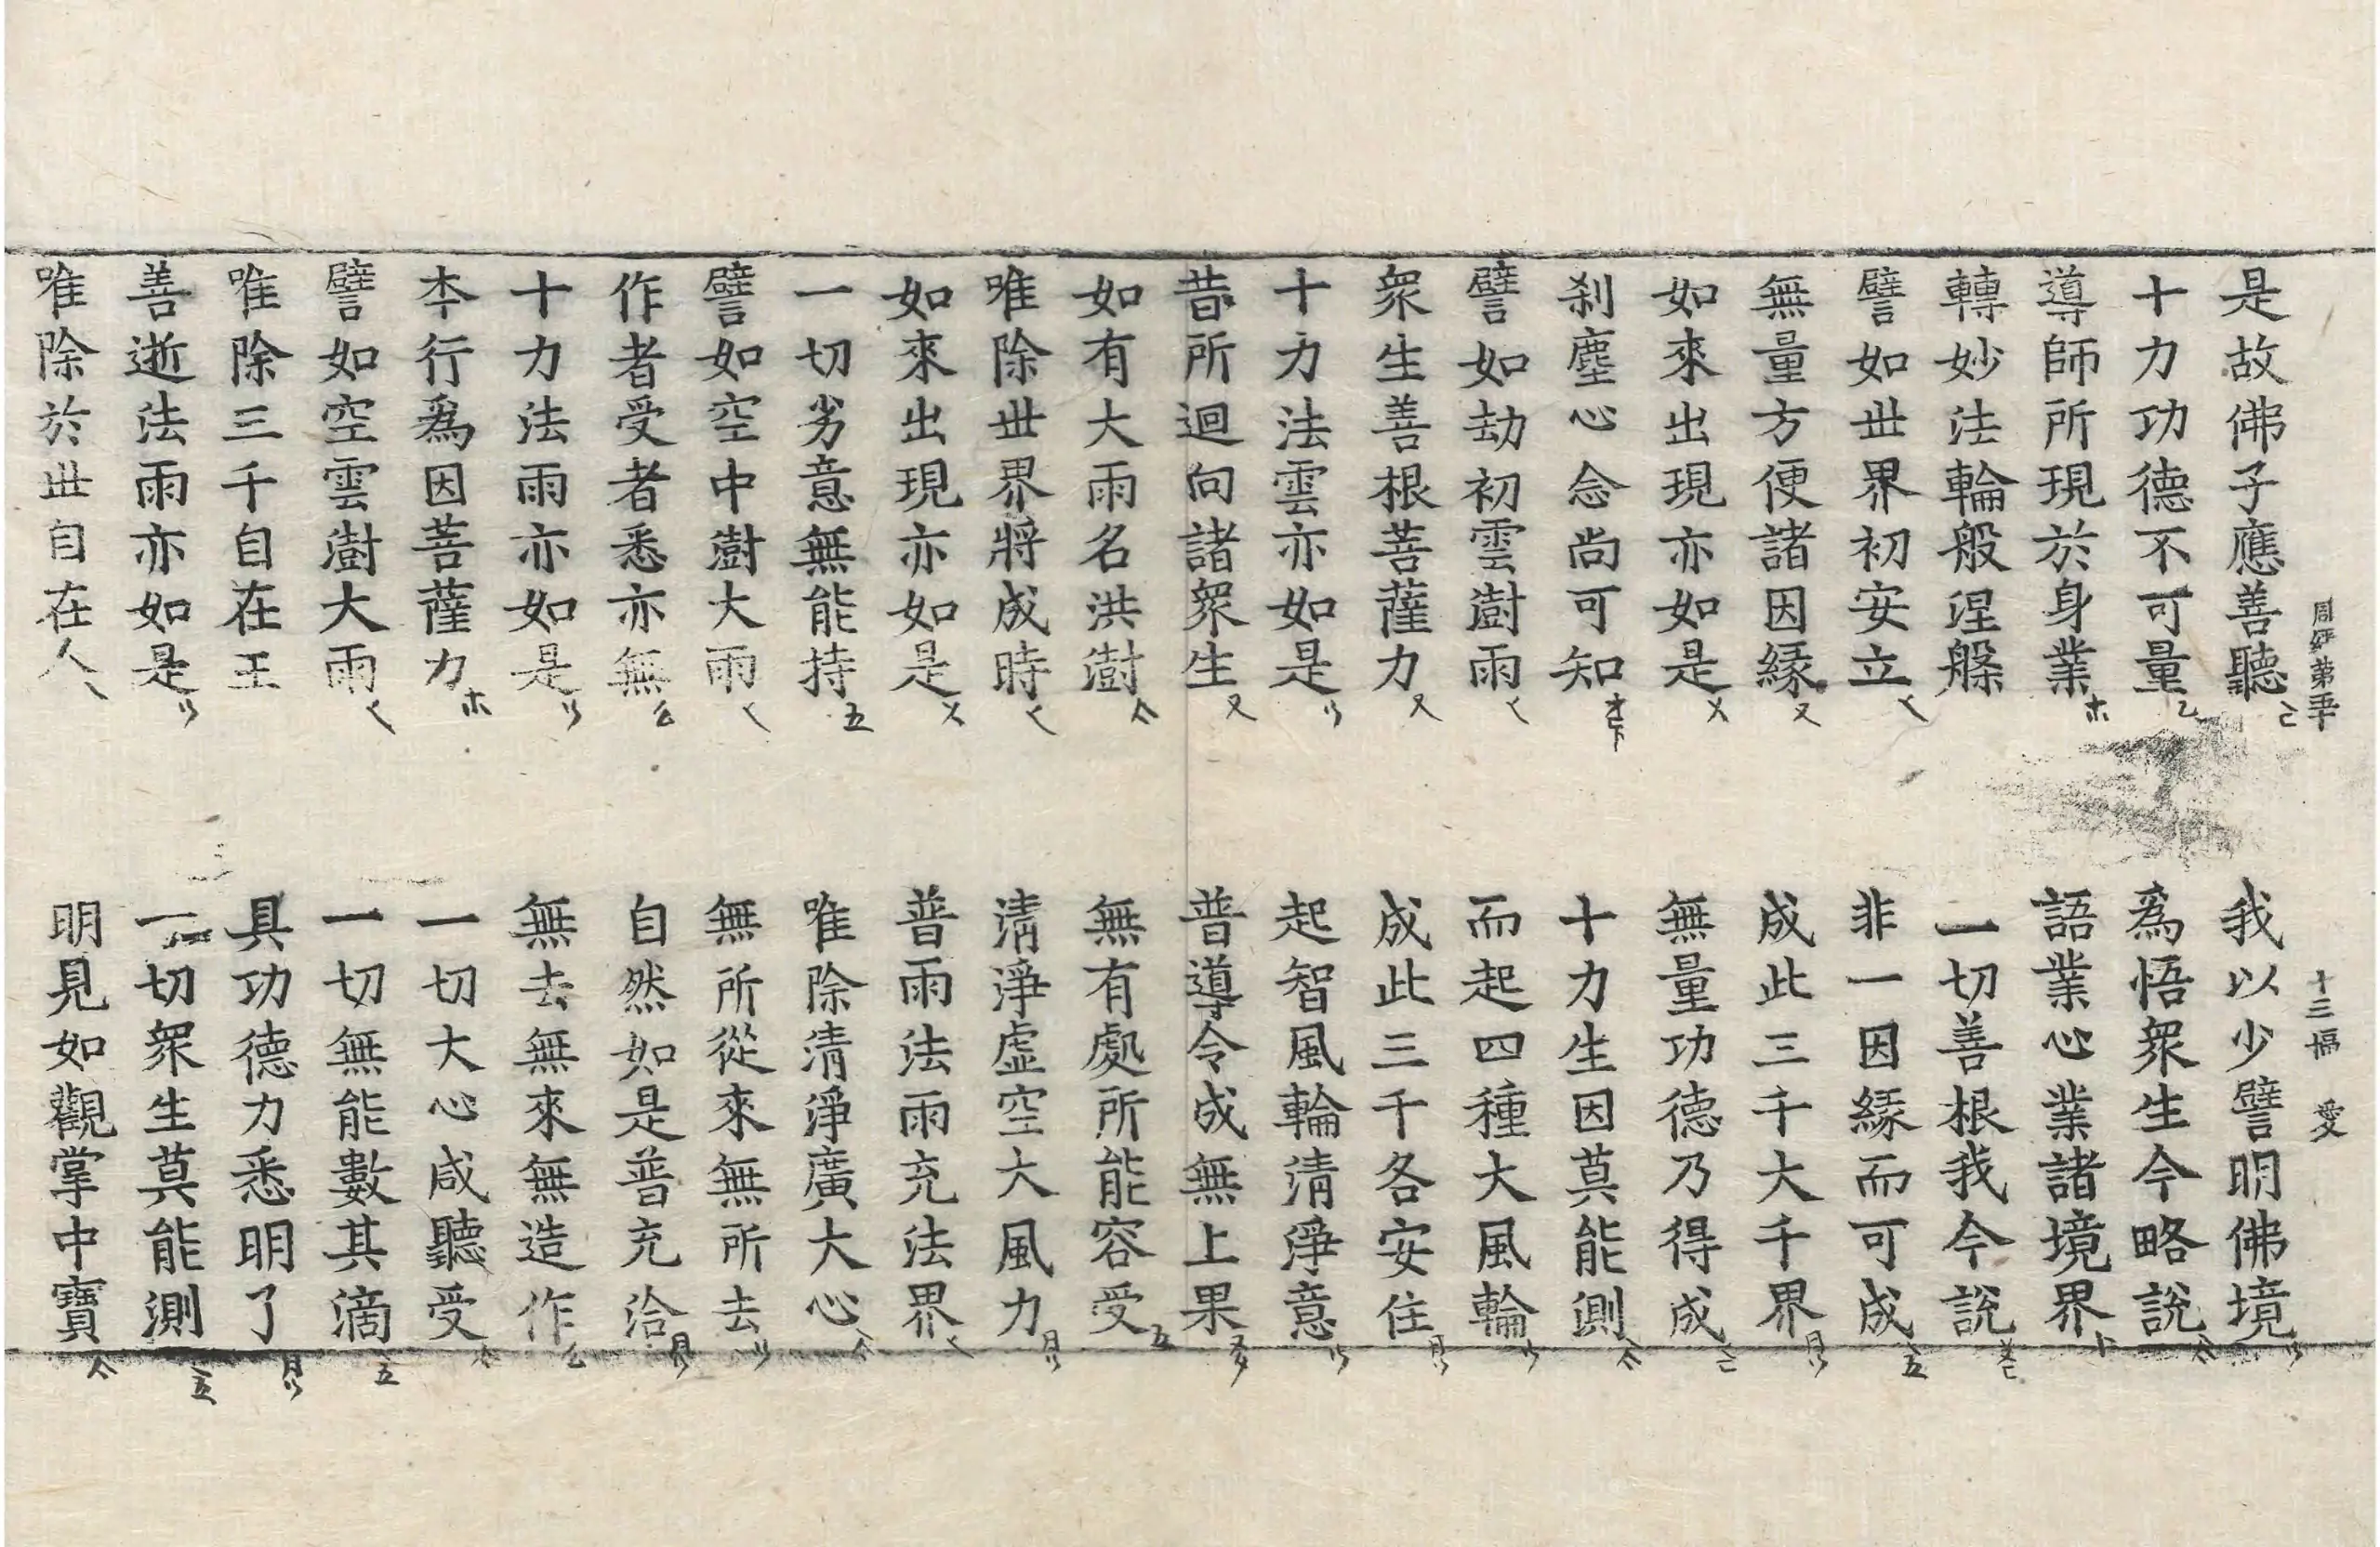 周經第五十 十三幅 愛
是故佛子應善聽 我以少譬明佛境
十力功德不可量 爲悟衆生今略說
導師所現於身業 語業心業諸境界
轉妙法輪般涅槃 一切善根我今說
譬如世界初安立 非一因緣而可成
無量方便諸因緣 成此三千大千界
如來出現亦如是 無量功德乃得成
刹塵心念尚可知 十力生因莫能測
譬如劫初雲澍雨 而起四種大風輪
衆生善根菩薩力 成此三千各安住
十力法雲亦如是 起智風輪清淨意
昔所迴向諸衆生 普導令成無上果
如有大雨名洪澍 無有處所能容受
唯除世界將成時 清淨虛空大風力
如來出現亦如是 普雨法雨充法界
一切劣意無能持 唯除清淨廣大心
譬如空中澍大雨 無所從來無所去
作者受者悉亦無 自然如是普充洽
十力法雨亦如是 無去無來無造作
本行爲因菩薩力 一切大心咸聽受
譬如空雲澍大雨 一切無能數其滴
唯除三千自在王 具功德力悉明了
善逝法雨亦如是 一切衆生莫能測
唯除於世自在人 明見如觀掌中寶